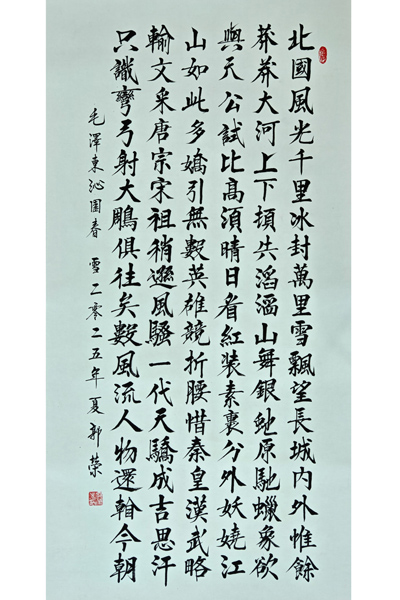 北國風光千里冰封萬里雪飄望長城內外惟餘
莽莽大河上下頓失滔滔山舞銀虵原馳蠟象欲
與天公試比高須晴日看紅裝素裹分外妖嬈江
山如此多嬌引無數英雄競折腰惜秦皇漢武略
輸文采唐宗宋祖稍遜風騷一代天驕成吉思汗
只識彎弓射大鵰俱往矣數風流人物還看今朝
毛澤東沁園春 雪二零二五年夏郭榮